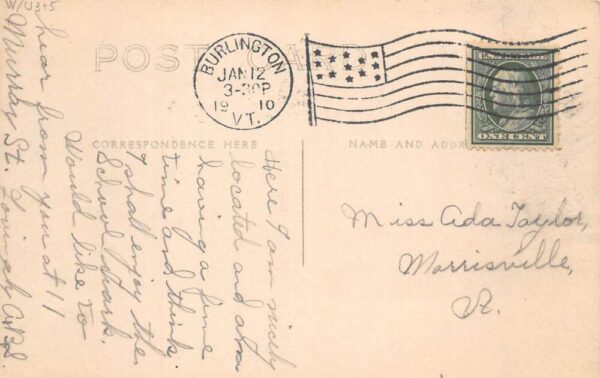 W/U3+5
POST CARD
BURLINGTON
JAN 12
3-30P
1910
VT.
U.S. POSTAGE
ONE CENT
CORRESPONDENCE HERE
NAME AND ADDR
Here I am nicely
located and am
having a fine
time and think
I shall enjoy the
School work.
Would like to
hear from you at 11
Murray St.
Miss Ada Taylor,
Morrisville,
Vt.